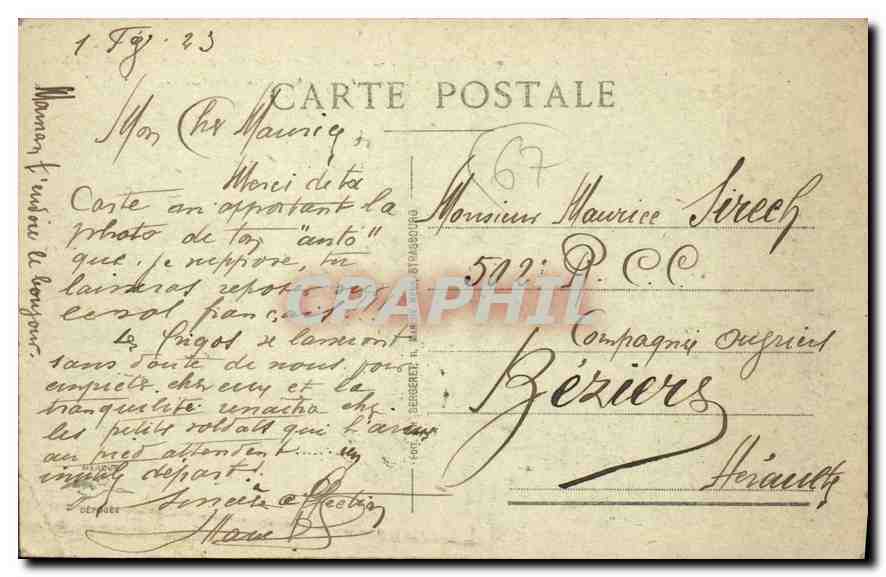 1. Fév. 23
CARTE POSTALE
Mon Cher Maurice,
Merci de ta
Carte en apportant la
photo de ton "auto"
que, je suppose, tu
laisseras reposer
le sol français !!!
Les se lasseront
sans doute de nous
chez eux et la
tranquilité renaitra chez
les petits soldats qui l'arme
au pied attendent.... un
départ!
Sincère affection
Maman t'envoie le bonjour.
67
Monsieur Maurice Sirech
502e R. C. C.
Compagnie Ouvriers
Béziers
Hérault
STRASBOURG
BERGERET
DÉPOSÉE
CPAPHIL